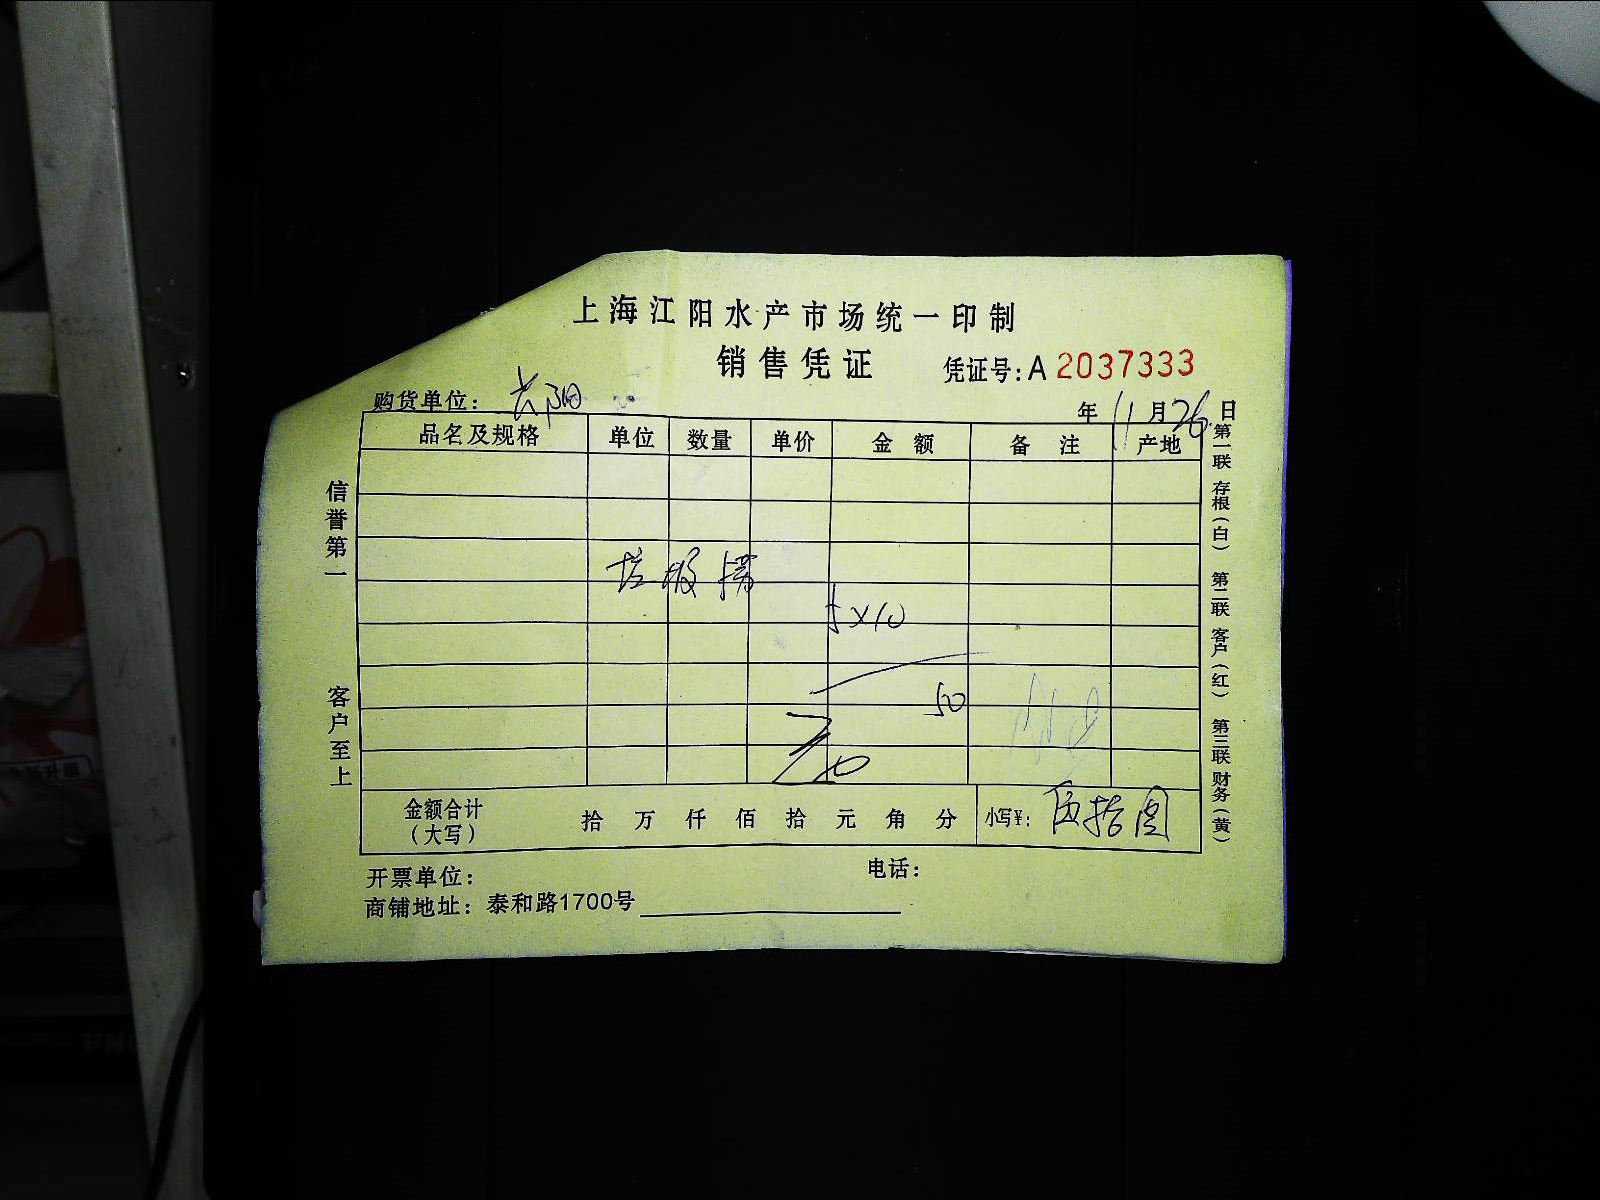 上海江阳水产市场统一印制
销售凭证 凭证号:A 2037333
购货单位: 年 11 月 26 日
品名及规格 单位 数量 单价 金额 备注 产地
垃圾
5×10
50
金额合计(大写) 拾 万 仟 佰 拾 元 角 分 小写¥: 伍拾圆
开票单位: 电话:
商铺地址: 泰和路1700号
信誉第一
客户至上
第一联 存根(白) 第二联 客户(红) 第三联 财务(黄)